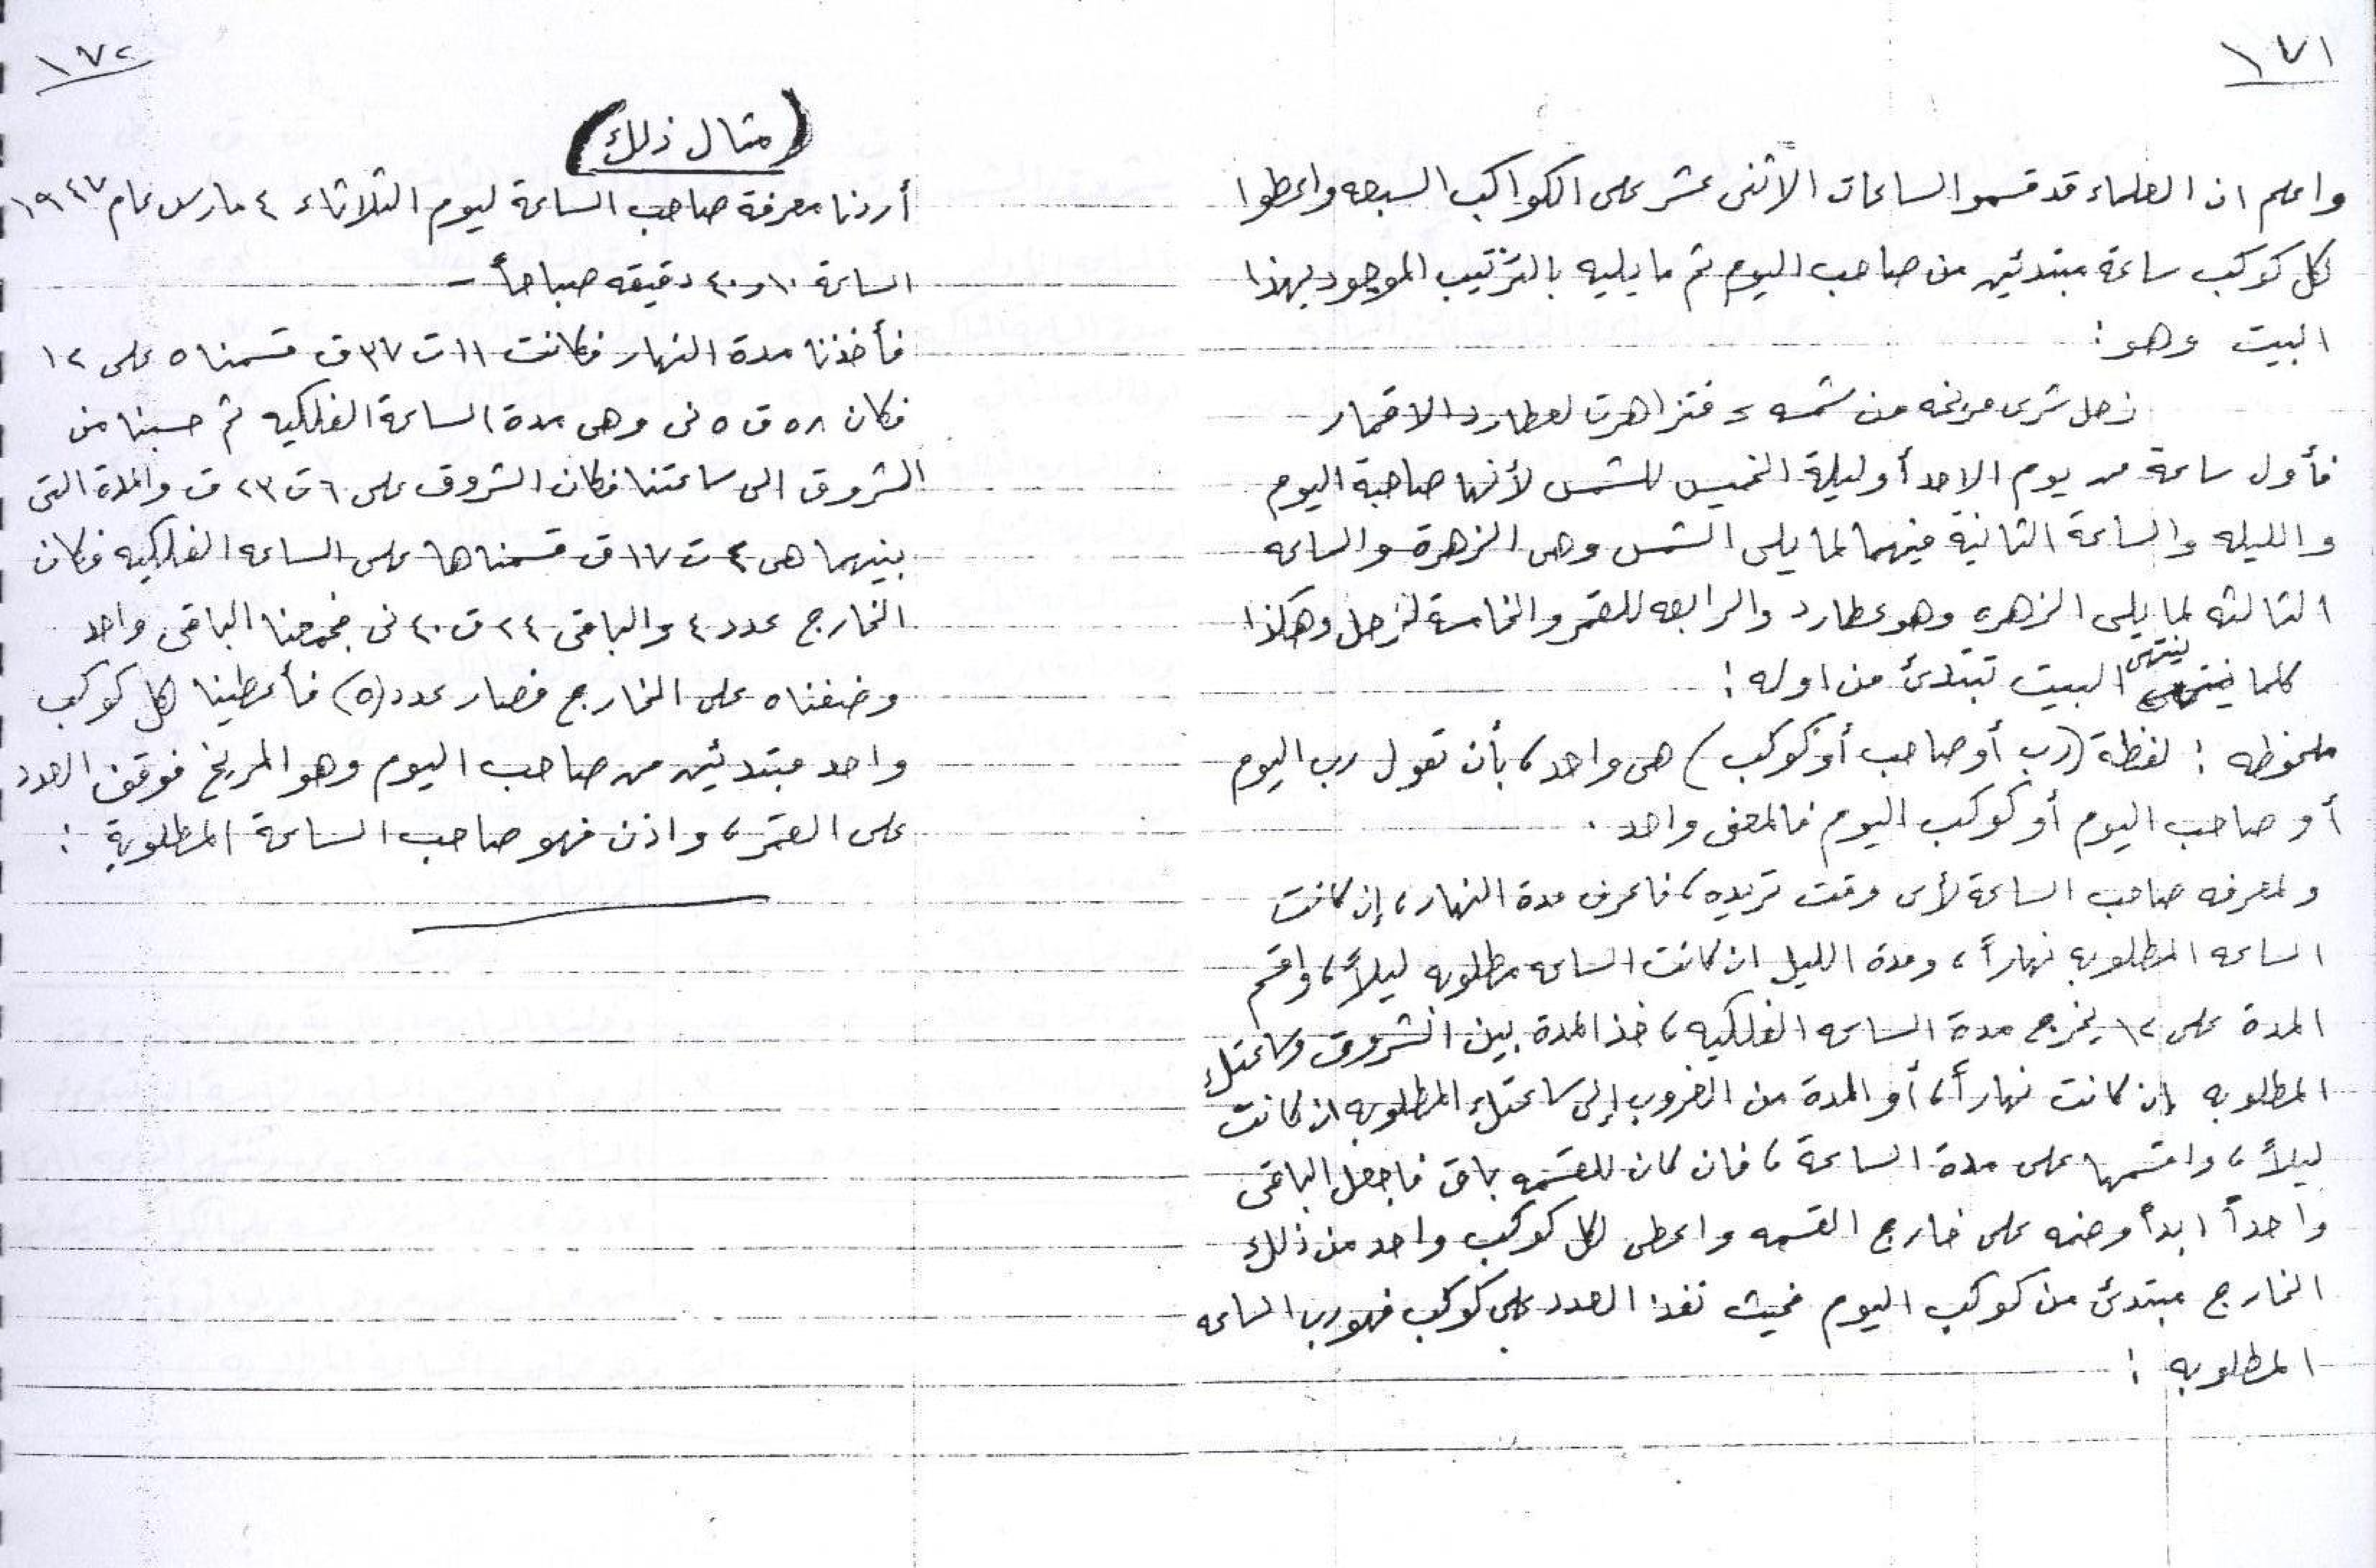 ١٧١
واعلم ان العلماء قد قسموا الساعات الاثنى عشر على الكواكب السبعه واعطوا
لكل كوكب ساعة مبتدئين من صاحب اليوم ثم ما يليه بالترتيب الموجود بهذا
البيت وهو:
زحل شرى مريخه من شمسه فتزاهرت لعطارد الاقمار
فأول ساعة من يوم الاحد أو ليلة الخميس للشمس لأنها صاحبة اليوم
والليله والساعة الثانية فيهما لما يلى الشمس وهى الزهرة والساعه
الثالثه لما يلى الزهره وهو عطارد والرابعه للقمر والخامسة لزحل وهكذا
كلما ينتهى البيت تبتدئ من اوله :
ملحوظه : لفظة (رب أو صاحب أو كوكب) هى واحد، بأن تقول رب اليوم
أو صاحب اليوم أو كوكب اليوم فالمعنى واحد .
ولمعرفه صاحب الساعة لأى وقت تريده، فاعرف مدة النهار، إن كانت
الساعه المطلوبه نهاراً، ومدة الليل ان كانت الساعه مطلوبه ليلاً، واقسم
المدة على ١٢ يخرج مدة الساعه الفلكيه، خذ المدة بين الشروق وساعتك
المطلوبه إن كانت نهاراً، أو المدة من الغروب إلى ساعتك المطلوبه ان كانت
ليلاً، واقسمها على مدة الساعة، فان كان للقسمه باق فاجعل الباقى
واحداً ابداً وضمه على خارج القسمه واعطى لكل كوكب واحد من ذلك
الخارج مبتدئ من كوكب اليوم فحيث نفذ العدد على كوكب فهو رب الساعه
المطلوبه :
١٧٢
(مثال ذلك)
أردنا معرفة صاحب الساعة ليوم الثلاثاء ٤ مارس عام ١٩٤٧
الساعة ١٠ و٤٠ دقيقه صباحاً -
فأخذنا مدة النهار فكانت ١١ ت ٣٧ ق قسمناه على ١٢
فكان ٥٨ ق ٥ نى وهى مدة الساعة الفلكيه ثم حسبنا من
الشروق الى ساعتنا فكان الشروق على ٦ ت ٢٣ ق والمدة التى
بينهما هى ٤ ت ١٧ ق قسمناها على الساعه الفلكيه فكان
الخارج عدد ٤ والباقى ٢٤ ق ٤٠ نى فجمعنا الباقى واحد
وضفناه على الخارج فصار عدد (٥) فأعطينا لكل كوكب
واحد مبتدئين من صاحب اليوم وهو المريخ فوقف العدد
على القمر، واذن فهو صاحب الساعة المطلوبة :